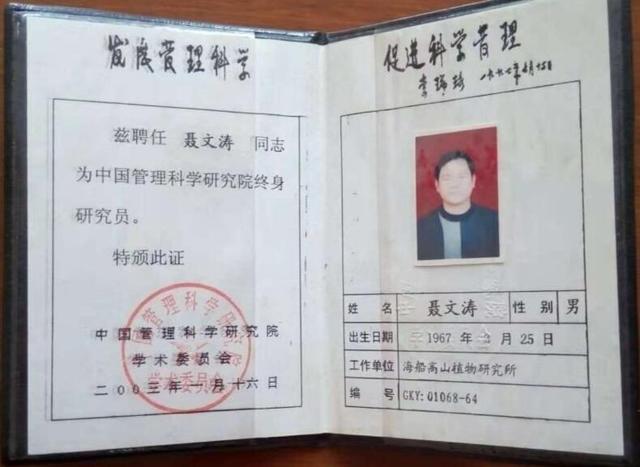 发展管理科学
兹聘任 聂文涛 同志
为中国管理科学研究院终身
研究员。
特颁此证
中国管理科学研究院
学术委员会
二00三年一月十六日
管理科学研究
学术委员会
促进科学管理
李瑞环
姓名 聂文涛 性别 男
出生日期 1967 年 月 25 日
工作单位 海船高山植物研究所
编号 GKY:01068-64